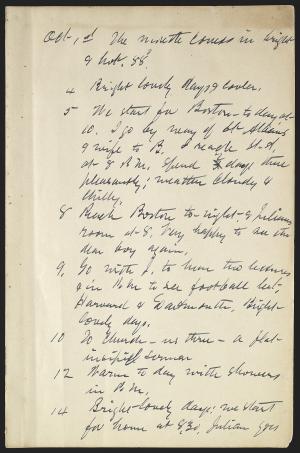 Oct, 1st The month comes in bright
& hot, 88°
4 Bright lovely days & cooler.
5 We start for Boston - to day at
10. I go by way of St Albans
& wife to B. Beagle St. A.
at 8 P.M. Spend days there
pleasantly; weather cloudy &
chilly.
8 Reach Boston to-night - & Julians
room at 8. Very happy to see the
dear boy again.
9. Go with J. to hear two lectures
& in P.M. to see football bet,
Harvard & Dartmouth. Bright-
lovely days.
10 To Church - us three - a flat-
insipid sermon
12 Warm to day with showers
in P.M.
14 Bright-lovely days; we start
for home at 8,30, Julian goes